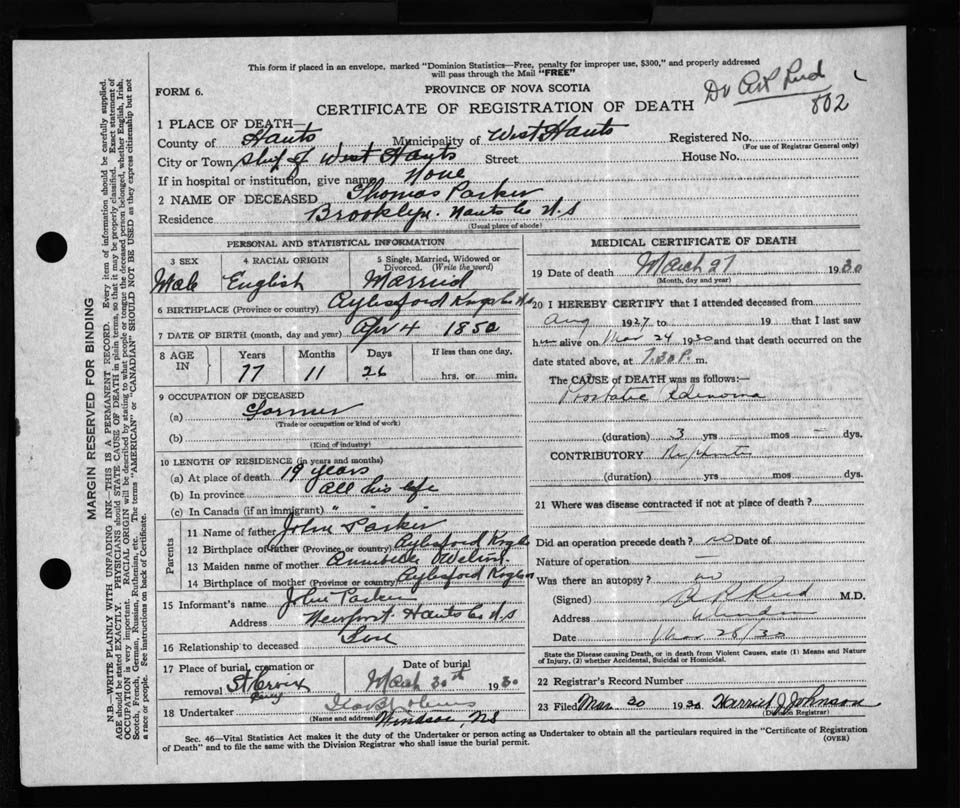 This form if placed in an envelope, marked "Dominion Statistics—Free, penalty for improper use, $300," and properly addressed
will pass through the Mail "FREE"
FORM 6.
PROVINCE OF NOVA SCOTIA
CERTIFICATE OF REGISTRATION OF DEATH
Dr Reid
802
1 PLACE OF DEATH—
County of Hants Municipality of West Hants Registered No.
(For use of Registrar General only)
City or Town of West Hants Street House No.
If in hospital or institution, give name None
2 NAME OF DECEASED Thomas Parker
Residence Brooklyn. Hants Co N.S
(Usual place of abode)
PERSONAL AND STATISTICAL INFORMATION
3 SEX 4 RACIAL ORIGIN 5 Single, Married, Widowed or Divorced. (Write the word)
Male English Married
6 BIRTHPLACE (Province or country) Aylesford Kings Co N.S
7 DATE OF BIRTH (month, day and year) Apr 4 1852
8 AGE IN Years Months Days If less than one day,
77 11 26 hrs. or min.
9 OCCUPATION OF DECEASED
(a) Farmer
(Trade or occupation or kind of work)
(b)
(Kind of industry)
10 LENGTH OF RESIDENCE (in years and months)
(a) At place of death 19 years
(b) In province all his life
(c) In Canada (if an immigrant) " " "
Parents
11 Name of father John Parker
12 Birthplace of father (Province or country) Aylesford Kings
13 Maiden name of mother
14 Birthplace of mother (Province or country) Aylesford Kings
15 Informant's name John Parker
Address Newport Hants Co N.S
16 Relationship to deceased Son
17 Place of burial, cremation or removal St Croix
Date of burial
March 30th 1930
18 Undertaker
(Name and address) Windsor, NS
MEDICAL CERTIFICATE OF DEATH
19 Date of death March 27 1930
(Month, day and year)
20 I HEREBY CERTIFY that I attended deceased from
Aug 1927 to 19 that I last saw
him alive on Mar 24 1930 and that death occurred on the
date stated above, at 7.30 P. m.
The CAUSE of DEATH was as follows:—
Prostatic Adenoma
(duration) 3 yrs — mos — dys.
CONTRIBUTORY Nephritis
(duration) yrs mos dys.
21 Where was disease contracted if not at place of death?
Did an operation precede death? no Date of
Nature of operation
Was there an autopsy? no
(Signed) Reid M.D.
Address Windsor
Date Mar 28/30
State the Disease causing Death, or in death from Violent Causes, state (1) Means and
Nature of Injury, (2) whether Accidental, Suicidal or Homicidal.
22 Registrar's Record Number
23 Filed Mar 30 1930 Harriet J Johnson
(Division Registrar)
Sec. 46—Vital Statistics Act makes it the duty of the Undertaker or person acting as Undertaker to obtain all the particulars required in the "Certificate of Registration
of Death" and to file the same with the Division Registrar who shall issue the burial permit.
(OVER)
MARGIN RESERVED FOR BINDING
N.B.—WRITE PLAINLY WITH UNFADING INK—THIS IS A PERMANENT RECORD. Every item of information should be carefully supplied.
AGE should be stated EXACTLY. PHYSICIANS should STATE CAUSE OF DEATH in plain terms, so that it may be properly classified. Exact statement of
OCCUPATION is very important. RACIAL ORIGIN will be described by stating to what people or tongue the deceased person belonged, whether English, Irish,
Scotch, French, German, Russian, Ruthenian, etc. The terms "AMERICAN" or "CANADIAN" SHOULD NOT BE USED as they express citizenship but not
a race or people. See instructions on back of Certificate.